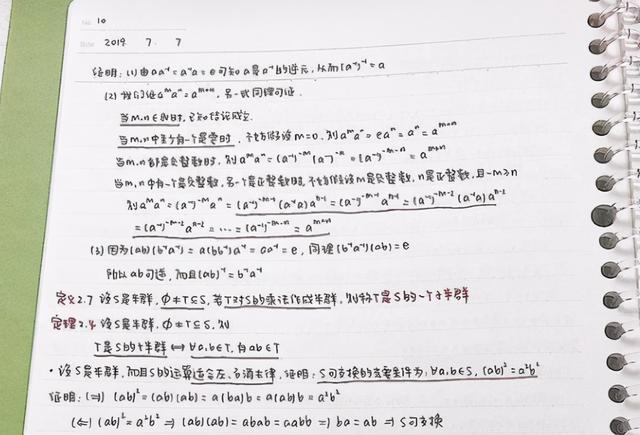 No. 10
Date 2019. 7. 7
证明:(1)由aa⁻¹=a⁻¹a=e可知a是a⁻¹的逆元,从而(a⁻¹)⁻¹=a
(2)我们证aᵐaⁿ=aᵐ⁺ⁿ,另一式同理可证.
当m,n∈N时,已知结论成立.
当m,n中至少有一个是零时,不妨假设m=0,则aᵐaⁿ=eaⁿ=aⁿ=aᵐ⁺ⁿ
当m,n都是负整数时,则aᵐaⁿ=(a⁻¹)⁻ᵐ(a⁻¹)⁻ⁿ=(a⁻¹)⁻ᵐ⁻ⁿ=aᵐ⁺ⁿ
当m,n中有一个是负整数,另一个是正整数时,不妨假设m是负整数,n是正整数,且-m≥n
则aᵐaⁿ=(a⁻¹)⁻ᵐaⁿ=(a⁻¹)⁻ᵐ⁻¹(a⁻¹a)aⁿ⁻¹=(a⁻¹)⁻ᵐ⁻¹aⁿ⁻¹=(a⁻¹)⁻ᵐ⁻²(a⁻¹a)aⁿ⁻²
=(a⁻¹)⁻ᵐ⁻²aⁿ⁻²=…=(a⁻¹)⁻ᵐ⁻ⁿ=aᵐ⁺ⁿ
(3)因为(ab)(b⁻¹a⁻¹)=a(bb⁻¹)a⁻¹=aa⁻¹=e,同理(b⁻¹a⁻¹)(ab)=e
所以ab可逆,而且(ab)⁻¹=b⁻¹a⁻¹
定义2.7 设S是半群,∅≠T⊆S,若T对S的乘法作成半群,则称T是S的一个子半群
定理2.4 设S是半群,∅≠T⊆S,则
T是S的子半群⟺∀a,b∈T,有ab∈T
·设S是半群,而且S的运算适合左、右消去律,证明:S可交换的充要条件为:∀a,b∈S,(ab)²=a²b²
证明:(⇒)(ab)²=(ab)(ab)=a(ba)b=a(ab)b=a²b²
(⇐)(ab)²=a²b²⇒(ab)(ab)=abab=aabb⇒ba=ab⇒S可交换